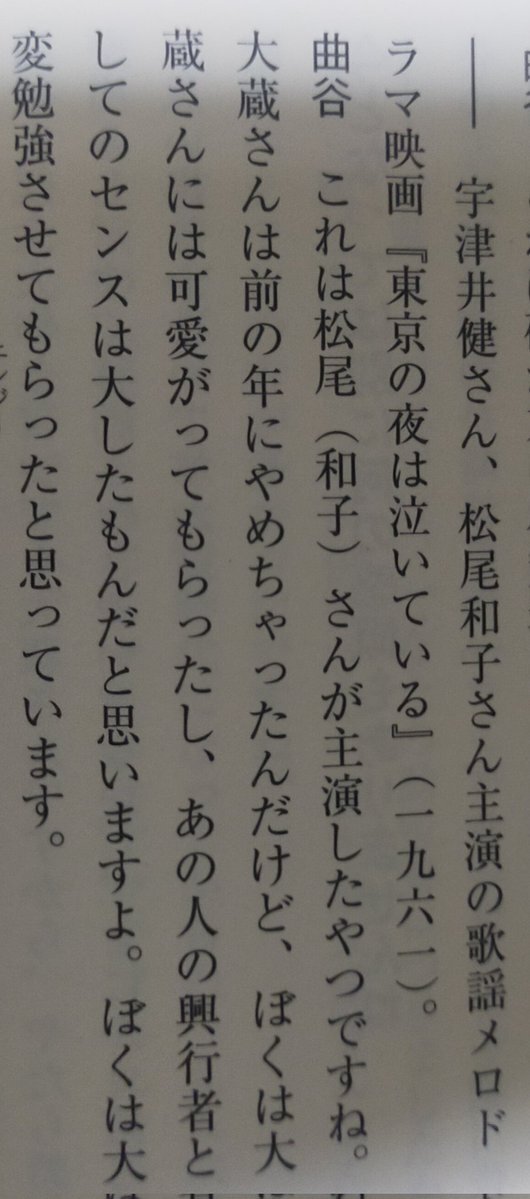 ―― 宇津井健さん、松尾和子さん主演の歌謡メロド
ラマ映画『東京の夜は泣いている』（一九六一）。
曲谷 これは松尾（和子）さんが主演したやつですね。
大蔵さんは前の年にやめちゃったんだけど、ぼくは大
蔵さんには可愛がってもらったし、あの人の興行者と
してのセンスは大したもんだと思いますよ。ぼくは大
変勉強させてもらったと思っています。